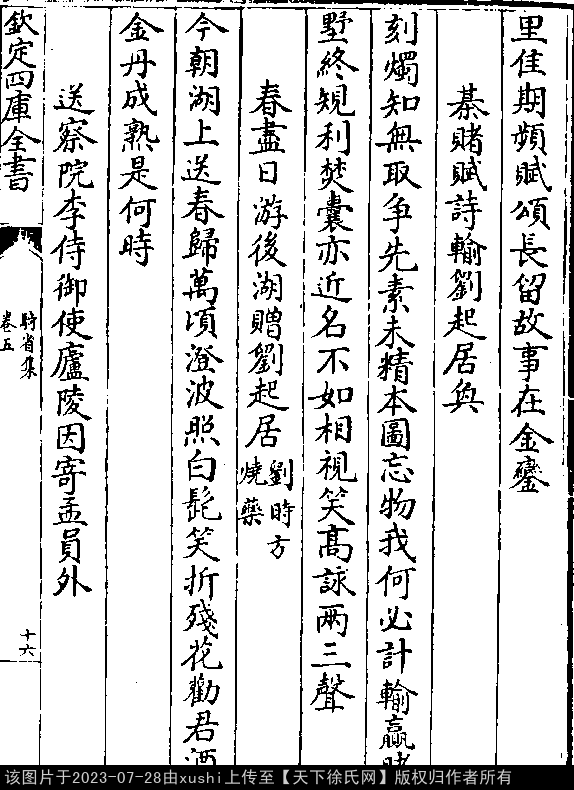 里佳期頻賦頌長留故事在金鑾
棊賭賦詩輸劉起居奐
刻燭知無取争先素未精本圖忘物我何必計輸贏賭
墅終規利焚囊亦近名不如相視笑髙詠兩三聲
春盡日游後湖贈劉起居劉時方燒藥
今朝湖上送春歸萬頃澄波照白髭笑折殘花勸君酒
金丹成熟是何時
送察院李侍御使廬陵因寄孟員外
欽定四庫全書
騎省集
卷五
十六
该图片于2023-07-28由xushi上传至【天下徐氏网】版权归作者所有